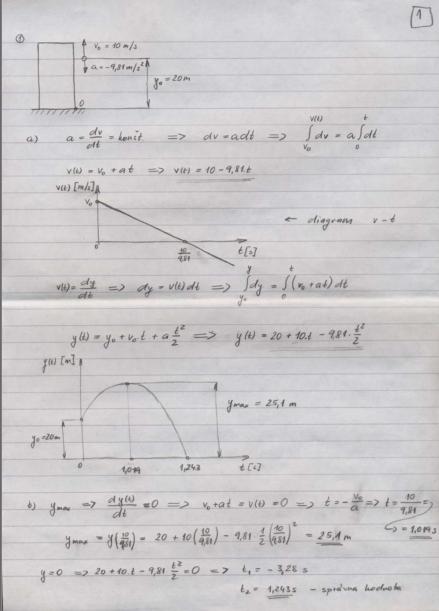 1
①
v₀ = 10 m/s
a = -9,81 m/s²
y₀ = 20m
0
a) a = dv/dt = konšt => dv = adt => ∫_{v₀}^{v(t)} dv = a ∫_{0}^{t} dt
v(t) = v₀ + at => v(t) = 10 - 9,81.t
v(t) [m/s]
v₀
← diagram v-t
0
10/9,81
t[s]
v(t) = dy/dt => dy = v(t) dt => ∫_{y₀}^{y} dy = ∫_{0}^{t} (v₀ + at) dt
y(t) = y₀ + v₀.t + a t²/2 => y(t) = 20 + 10.t - 9,81. t²/2
y(t) [m]
y_max = 25,1 m
y₀ = 20m
0
1,019
1,243
t[s]
b) y_max => dy(t)/dt = 0 => v₀ + at = v(t) = 0 => t = - v₀/a => t = 10/9,81
=> = 1,019 s
y_max = y(10/9,81) = 20 + 10(10/9,81) - 9,81. 1/2 (10/9,81)² = 25,1 m
y = 0 => 20 + 10.t - 9,81 t²/2 = 0 => t₁ = - 3,28 s
t₂ = 1,243 s - správna hodnota